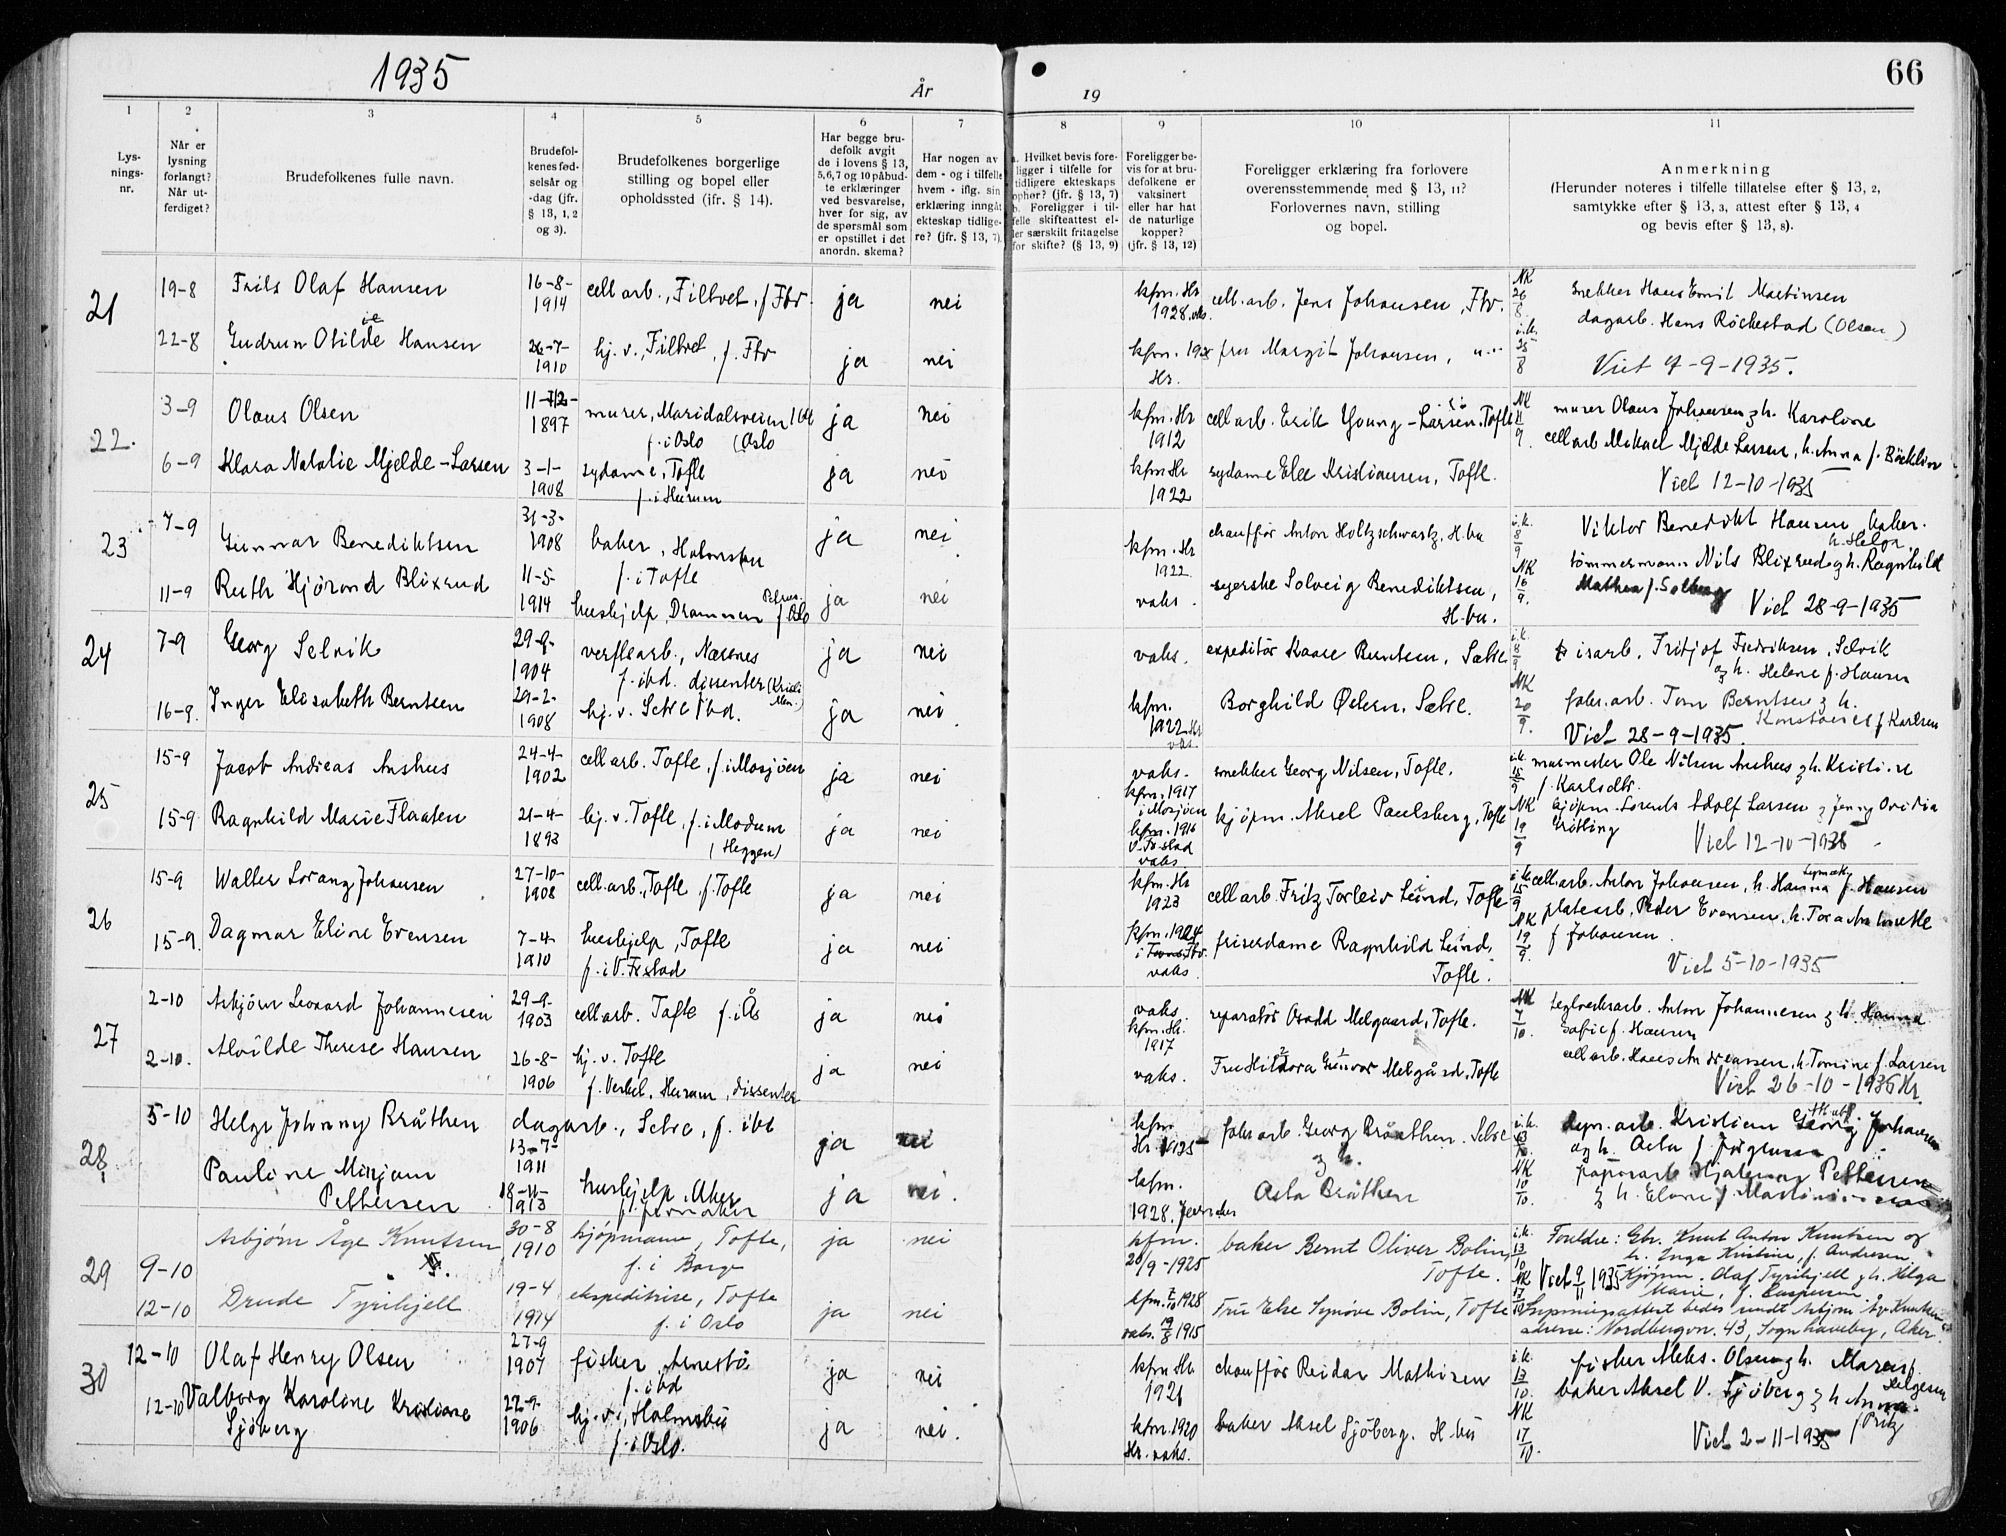 1935
År
19
66
1
2
3
4
5
6
7
8
9
10
11
Lys-
nings-
nr.
Når er
lysning
forlangt?
Når ut-
ferdiget?
Brudefolkenes fulle navn.
Brudefol-
kenes fød-
selsår og
-dag (jfr.
§ 13, 1, 2
og 3).
Brudefolkenes borgerlige
stilling og bopel eller
opholdssted (ifr. § 14).
Har begge bru-
defolk avgit
de i lovens § 13,
5,6,7 og 10 påbud-
te erklæringer
ved besvarelse,
hver for sig, av
de spørsmål som
er opstillet i det
anordn. skema?
Har nogen av
dem - og i tilfelle
hvem - iflg. sin
erklæring inngåt
ekteskap tidlige-
re? (jfr. § 13, 7).
a. Hvilket bevis fore-
ligger i tilfelle for
tidligere ekteskaps
ophør? (jfr. § 13, 7)
b. Foreligger i til-
felle skifteattest el-
ler særskilt fritagelse
for skifte? (§ 13, 9)
Foreligger be-
vis for at bru-
defolkene er
vaksinert
eller har hat
de naturlige
kopper?
(jfr. § 13, 12)
Foreligger erklæring fra forlovere
overensstemmende med § 13, 11?
Forlovernes navn, stilling
og bopel.
Anmerkning
(Herunder noteres i tilfelle tillatelse efter § 13, 2,
samtykke efter § 13, 3, attest efter § 13, 4
og bevis efter § 13, 8).
21
19-8
Frits Olaf Hansen
16-8-
1914
cell arb., Filtvet, f Ftv.
ja
nei
kfm. Hr
1928. vks.
cell. arb. Jens Johansen, Ftv.
NK
26
8
snekker Hans Emil Martinsen
dagarb. Hans Röckestad (Olsen)
22-8
Gudrun Otilde Hansen
26-7-
1910
hj. v., Filtvet, f. Ftv
ja
nei
kfm. 192
Hr.
fru Margit Johansen, "
i.k.
25
8
Viet 7-9-1935.
22.
3-9
Olaus Olsen
11-12-
1897
murer, Maridalsveien
f. i Oslo (Oslo
ja
nei
kfm. Hr
1912
cell arb. Erik Young-Larsen, Tofte
NK
11
9.
murer Olaus Johansen og h. Karoline
cell arb Mikael Mjelde Larsen, h. Anna f. Böcklin
6-9
Klara Natalie Mjelde-Larsen
3-1-
1908
sydame, Tofte
f. i Hurum
ja
nei
kfm Hr
1922
sydame Else Kristiansen, Tofte.
Viet 12-10-1935
23
7-9
Gunnar Benediktsen
31-3-
1908
baker, Holmsbu
f. i Tofte
ja
nei
kfm. Hr
1922
chauffør Anton Holtzschwartz, H.bu
i.k.
8
9
Viktor Benedikt Hansen, baker.
h. Helga
11-9
Ruth Hjörond Blixrud
11-5-
1914
hushjelp, Drammen f Oslo
ja
nei
vaks.
syerske Solveig Benediktsen,
H.bu.
NK
16
9.
tömmermann Nils Blixrud og h. Ragnhild
Mathea f. Solberg Viet 28-9-1935
24
7-9
Georg Selvik
29-9-
1904
verftsarb., Nærsnes
f. ibd. dissenter
ja
nei
vaks.
expeditör Kaare Berntsen, Sætre
i.k.
8
9
isarb. Fritjof Fredriksen, Selvik
og h. Helene f. Hansen
16-9.
Inger Elisabeth Berntsen
29-2-
1908
hj. v. Sætre ibd.
ja
nei
kfm.
1922 Hr
vaks.
Borghild Østern, Sætre.
NK
20
9.
fabr. arb. Tom Berntsen og h.
f Karlsen
Viet 28-9-1935
25
15-9
Jacob Andreas Aushus
24-4-
1902
cell arb. Tofte, f. i Mosjöen
ja
nei
vaks.
kfm. 1917
i Mosjøen
snekker Georg Nilsen, Tofte.
i.k.
15
9
murmester Ole Nilsen Aushus og h. Kristine
f. Karlsdtr.
15-9
Ragnhild Marie Flaaten
21-4-
1893
hj. v. Tofte, f. i Modum
(Heggen)
ja
nei
kfm. 1916
V. Fr.stad
vaks
kjöpm. Aksel Paulsberg, Tofte
NK
19
9
kjöpm. Lorents Adolf Larsen og Jenny Ovidia
Viet 12-10-1935
26
15-9
Walter Lorang Johansen
27-10-
1908
cell. arb., Tofte, f. Tofte
ja
nei
kfm. Hr
1923
cell arb. Fritz Torleiv Lund, Tofte
i.k.
15
9
cell. arb. Anton Johansen, h. Hanna f. Hansen
15-9.
Dagmar Eline Evensen
7-4-
1910
hushjelp, Tofte
f. i V. Fr.stad
ja
nei
kfm. 1924
vaks
friserdame Ragnhild Lund,
Tofte.
NK
19
9.
platearb. Peder Evensen, h. Tora Annette
f Johansen.
Viet 5-10-1935
27
2-10
Asbjörn Leonard Johannesen
29-9-
1903
cell arb. Tofte f. i Ås
ja
nei
vaks.
kfm. Hr.
1917
reparatör Oswald Melgaard, Tofte.
NK
7
10.
teglverksarb. Anton Johannesen og h. Hanna
Sofie f. Hansen
2-10.
Alvilde Therese Hansen
26-8-
1906
hj. v. Tofte
f. Verket, Hurum, dissenter
ja
nei
vaks.
Fru Hildora Gunvor Melgård, Tofte
cell arb. Hans Andreassen, h. Tomine f. Larsen
Viet 26-10-1935 Hr.
28
5-10
Helge Johnny Bråthen
dagarb., Sætre, f. ibd
13-7-
1911
ja
nei
kfm
Hr 1925
fabr arb. Georg Bråthen. Sætre
og h.
Asta Bråthen
i.k.
10.
dyn. arb. Kristian Georg Johansen
og h. Asta f. Jörgensen
Pauline Mirjam
Pettersen
18-11-
1913
hushjelp, Aker
ja
nei.
kfm.
1928.
NK
10
10.
papirarb Hjalmar Pettersen
og h. Elvine f. Martinsen
29
9-10
Asbjørn Åge Knutsen
30-8
1910
kjøpmann, Tofte,
f. i Borge
ja
nei
kfm.
20/9-1925
baker Bernt Oliver Bolin,
Tofte.
i.k.
13
10
Foreldre: Gbr. Knut Anton Knutsen og
h. Inga Kristine, f. Andresen
12-10
Drude Tyrihjell
19-4
1914
ekspeditrise, Tofte
f. i Oslo
ja
nei
kfm. 7/10 1928
vaks. 19/8 1915
Fru Else Synøve Bolin, Tofte
NK
17
10
Viet 9/11 1935 Kjøpm. Olaf Tyrihjell og h. Helga
Marie, f. Caspersen
Lysningsattest bedes sendt Asbjørn Åge Knutsen
adresse: Nordbergvn. 43, Sogn haveby, Aker.
30
12-10
Olaf Henry Olsen
27-9
1907
fisker, Arnestö
f. ibd
ja
nei
kfm Hr
1921
chauffør Reidar Mathisen
i.k.
13
10.
fisker Aleks. Olsen og h. Maren f.
Helgesen
12-10
Valborg Karoline Kristiane
Sjöberg
22-9-
1906
hj. v., Holmsbu
f. i Oslo.
ja
nei.
kfm. 1920
Hr. vaks.
baker Aksel Sjöberg. H.bu
NK
17
10.
baker Aksel V. Sjöberg og h Anna
f Pritz
Viet 2-11-1935